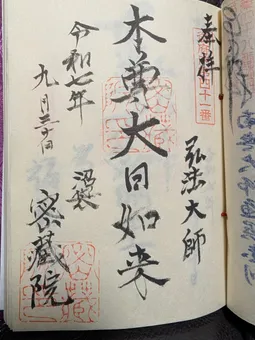 奉拝
四十一番
弘法大師
本尊大日如来
令和七年
九月三十日
沼袋
密蔵院